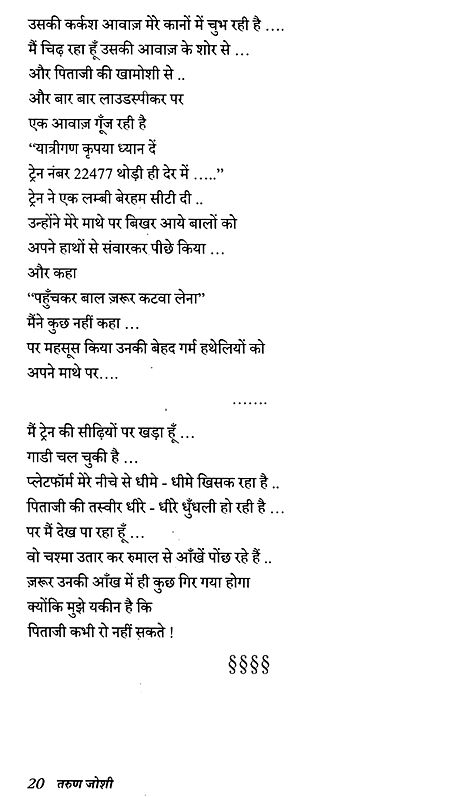 उसकी कर्कश आवाज़ मेरे कानों में चुभ रही है ....
मैं चिढ़ रहा हूँ उसकी आवाज़ के शोर से ...
और पिताजी की खामोशी से ..
और बार बार लाउडस्पीकर पर
एक आवाज़ गूँज रही है
“यात्रीगण कृपया ध्यान दें
ट्रेन नंबर 22477 थोड़ी ही देर में .....”
ट्रेन ने एक लम्बी बेरहम सीटी दी ..
उन्होंने मेरे माथे पर बिखर आये बालों को
अपने हाथों से संवारकर पीछे किया ...
और कहा
“पहुँचकर बाल ज़रूर कटवा लेना”
मैंने कुछ नहीं कहा ...
पर महसूस किया उनकी बेहद गर्म हथेलियों को
अपने माथे पर....
.......
मैं ट्रेन की सीढ़ियों पर खड़ा हूँ ...
गाडी चल चुकी है ...
प्लेटफॉर्म मेरे नीचे से धीमे - धीमे खिसक रहा है ..
पिताजी की तस्वीर धीरे - धीरे धुँधली हो रही है ...
पर मैं देख पा रहा हूँ ...
वो चश्मा उतार कर रुमाल से आँखें पोंछ रहे हैं ..
ज़रूर उनकी आँख में ही कुछ गिर गया होगा
क्योंकि मुझे यकीन है कि
पिताजी कभी रो नहीं सकते !
§§§§
20 तरुण जोशी